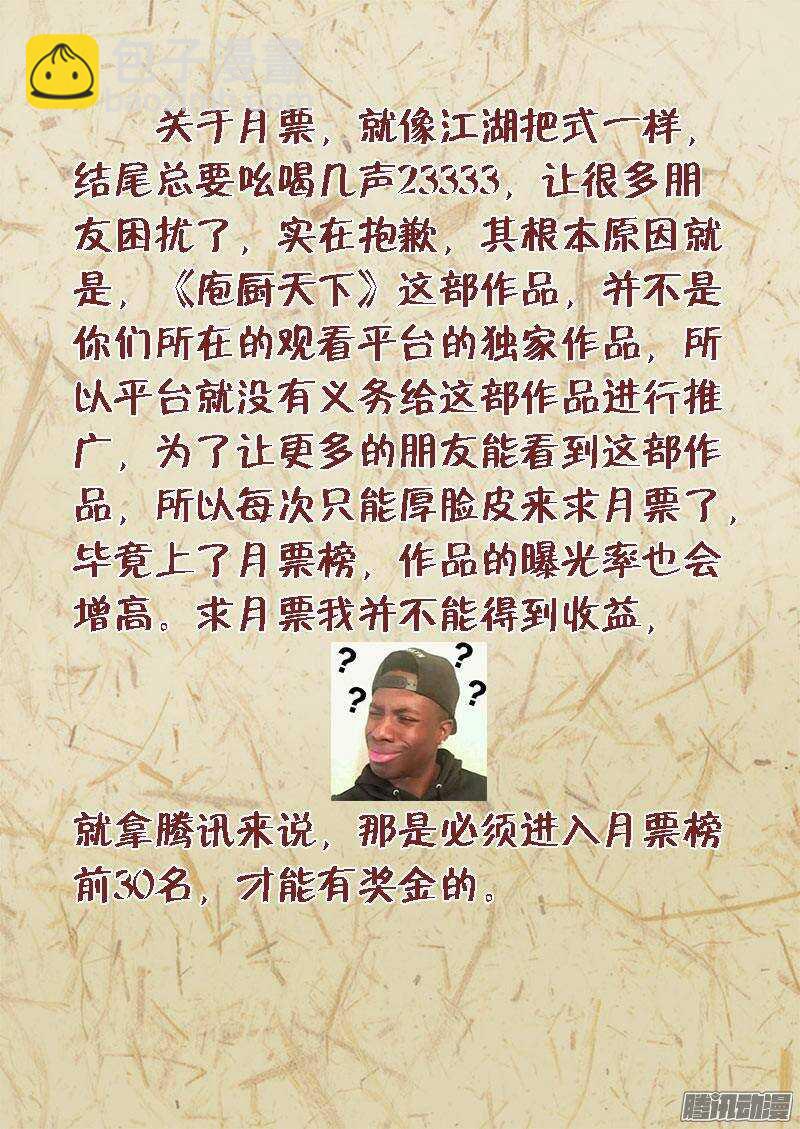 包子漫畫
baozimh.com
关于月票，就像江湖把式一样，
结尾总要吆喝几声23333，让很多朋
友困扰了，实在抱歉，其根本原因就
是，《庖厨天下》这部作品，并不是
你们所在的观看平台的独家作品，所
以平台就没有义务给这部作品进行推
广，为了让更多的朋友能看到这部作
品，所以每次只能厚脸皮来求月票了，
毕竟上了月票榜，作品的曝光率也会
增高。求月票我并不能得到收益，
? ? ? ?
就拿腾讯来说，那是必须进入月票榜
前30名，才能有奖金的。
腾讯动漫